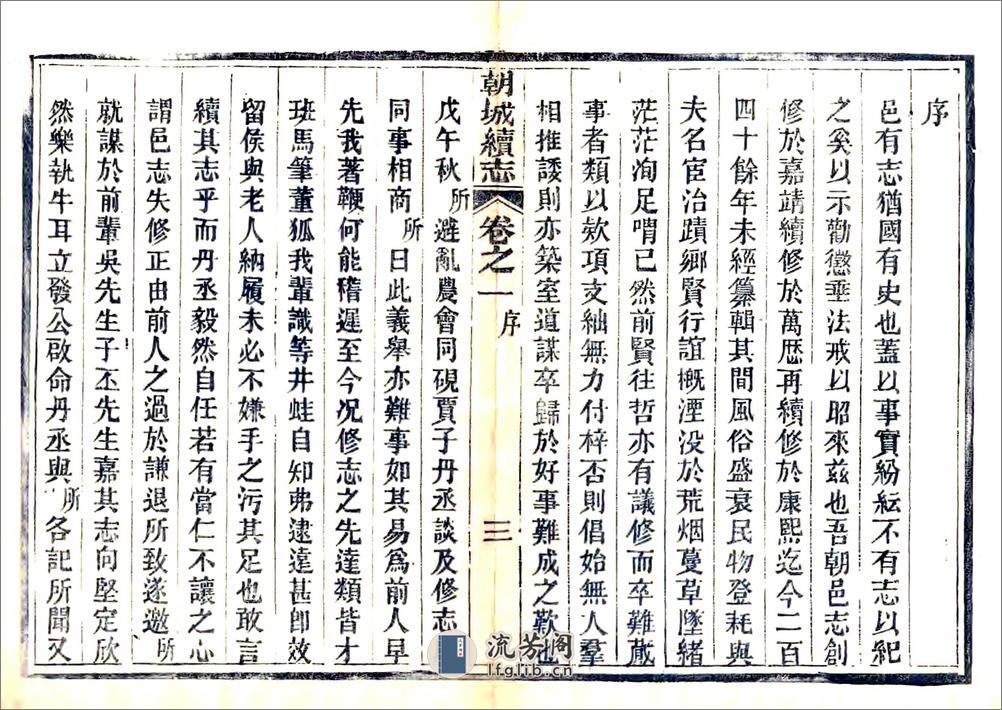 序
邑有志猶國有史也蓋以事實紛紜不有志以紀
之奚以示勸懲垂法戒以昭來兹也吾朝邑志創
修於嘉靖續修於萬厯再續修於康熙迄今二百
四十餘年未經纂輯其間風俗盛衰民物登耗與
夫名宦治蹟鄉賢行誼概湮没於荒烟蔓草墜緒
茫茫洵足喟已然前賢往哲亦有議修而卒難蕆
事者類以欵項支絀無力付梓否則倡始無人羣
相推諉則亦築室道謀卒歸於好事難成之歎也
朝城續志 卷之一 序 三
戊午秋所避亂農會同硯賈子丹丞談及修志
同事相商所曰此義舉亦難事如其易爲前人早
先我著鞭何能稽遲至今况修志之先達類皆才
班馬筆董狐我輩識等井蛙自知弗逮遠甚卽效
留侯與老人納履未必不嫌手之污其足也敢言
續其志乎而丹丞毅然自任若有當仁不讓之心
謂邑志失修正由前人之過於謙退所致遂邀所
就謀於前輩吳先生子丕先生嘉其志向堅定欣
然樂執牛耳立發公啟命丹丞與所各記所聞又
流芳阁
lfglib.cn